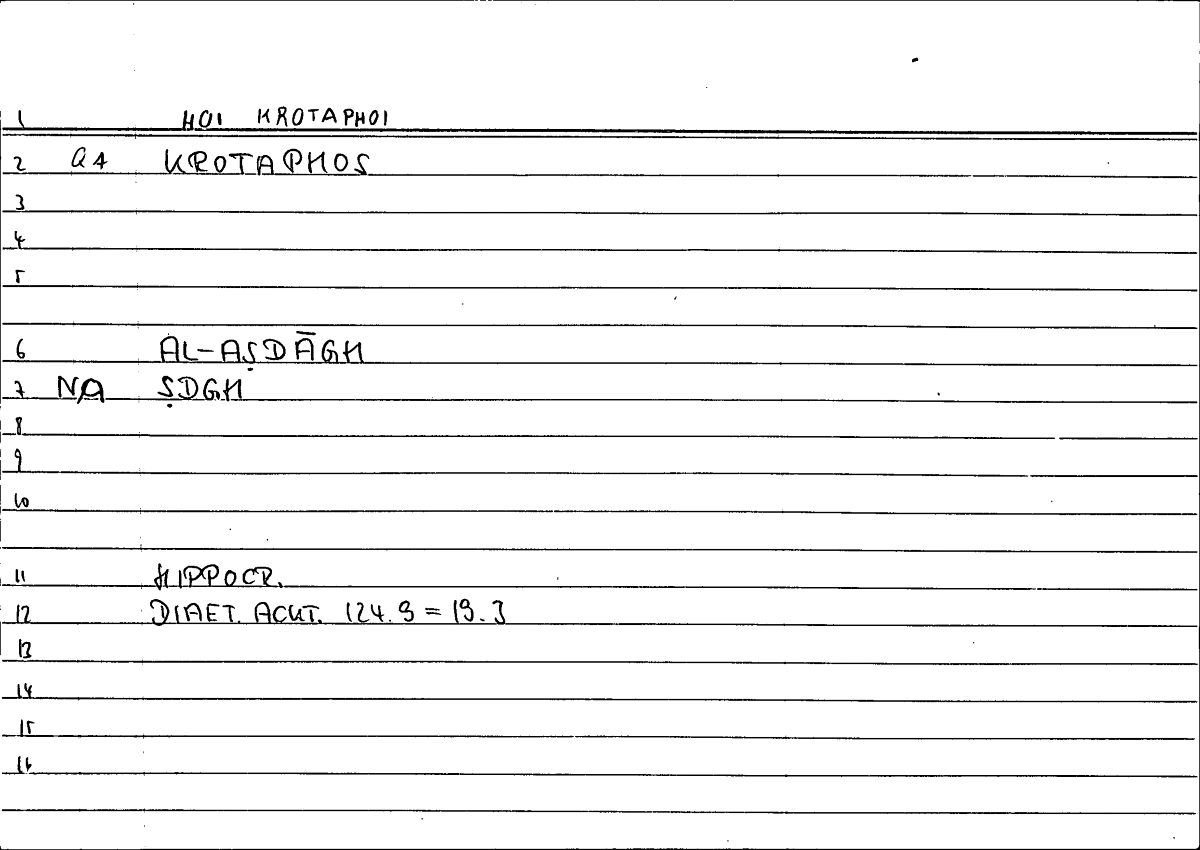 1 HOI KROTAPHOI
2 QA KROTAPHOS
3
4
5
6 AL-AṢDĀGH
7 NA ṢDGH
8
9
10
11 HIPPOCR.
12 DIAET. ACUT. 124.9 = 19.3
13
14
15
16